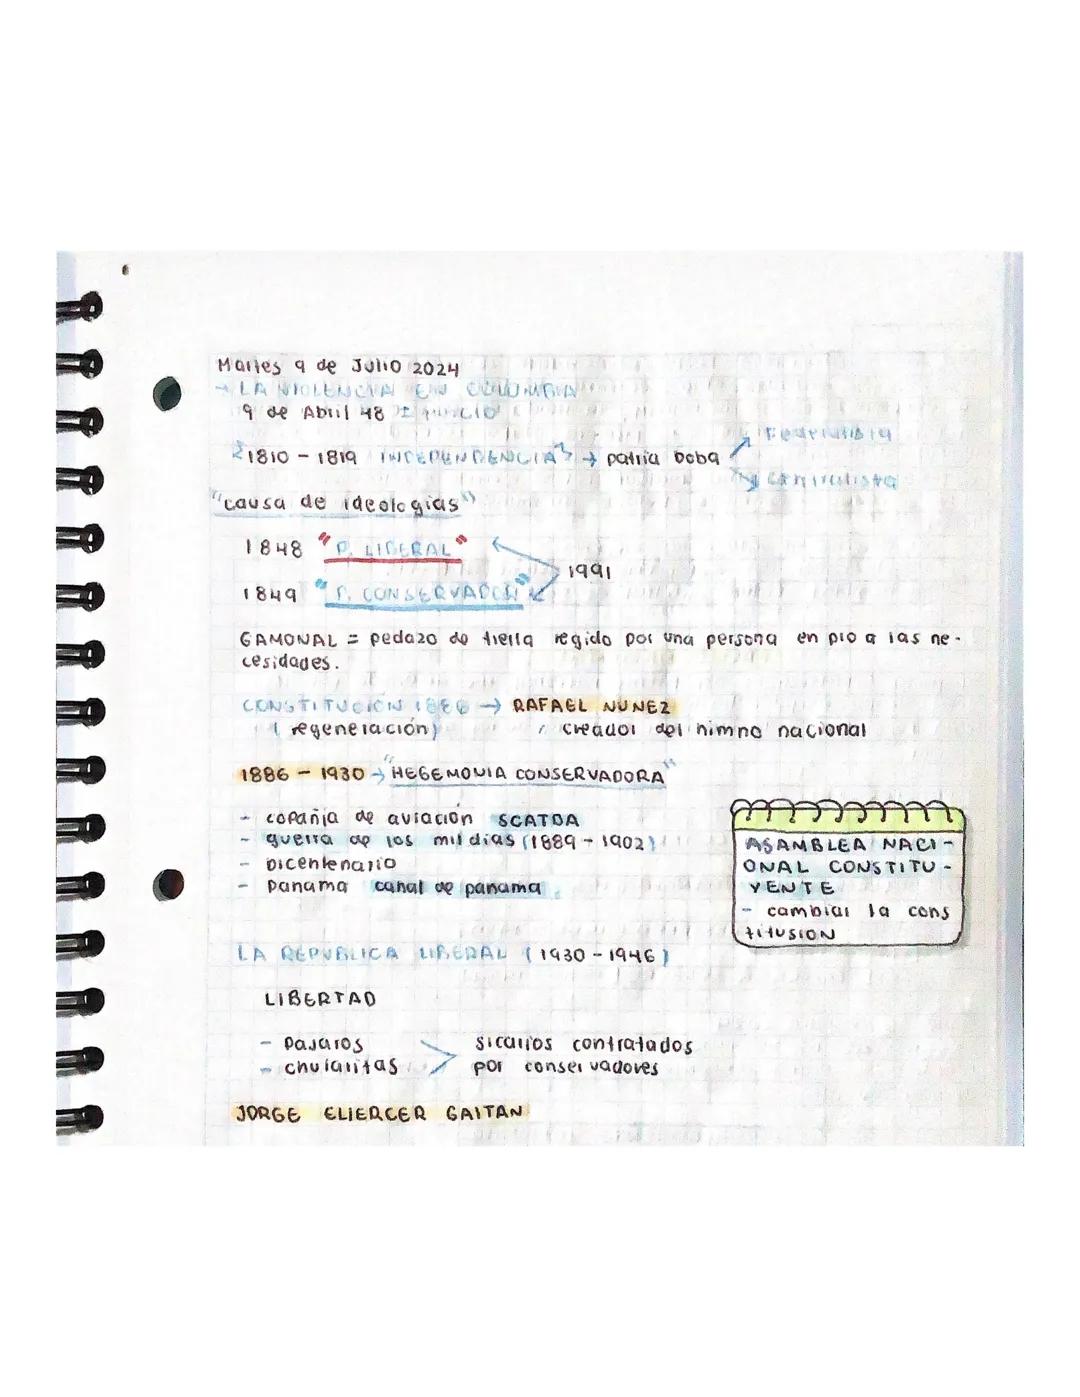 Martes 9 de Julio 2024
→ LA VIOLENCIA EN COLOMBIA
9 de Abril 48 I
1810 - 1819 INDEPENDENCIA → patria boba
Federalista
Centralista
"causa de ideologias"
1848 "P. LIBERAL"
1991
1849 "P. CONSERVADOR"
GAMONAL = pedazo de tierra regido por una persona en pro a las ne-
cesidades.
CONSTITUCIÓN 1886 → RAFAEL NUÑEZ
(regeneración) creador del himno nacional
1886 - 1930 → "HEGEMONIA CONSERVADORA"
- copañia de aviación SCATDA
- guerra de los mil dias (1889 - 1902)
- Dicentenario
- Panama canal de panama
ASAMBLEA NACI-
ONAL CONSTITU-
YENTE
- cambiar la cons
titusion
LA REPUBLICA LIBERAL (1930 - 1946)
LIBERTAD
- Pajaros
- chularitas
sicarios contratados
por conservadores
JORGE ELIERCER GAITAN